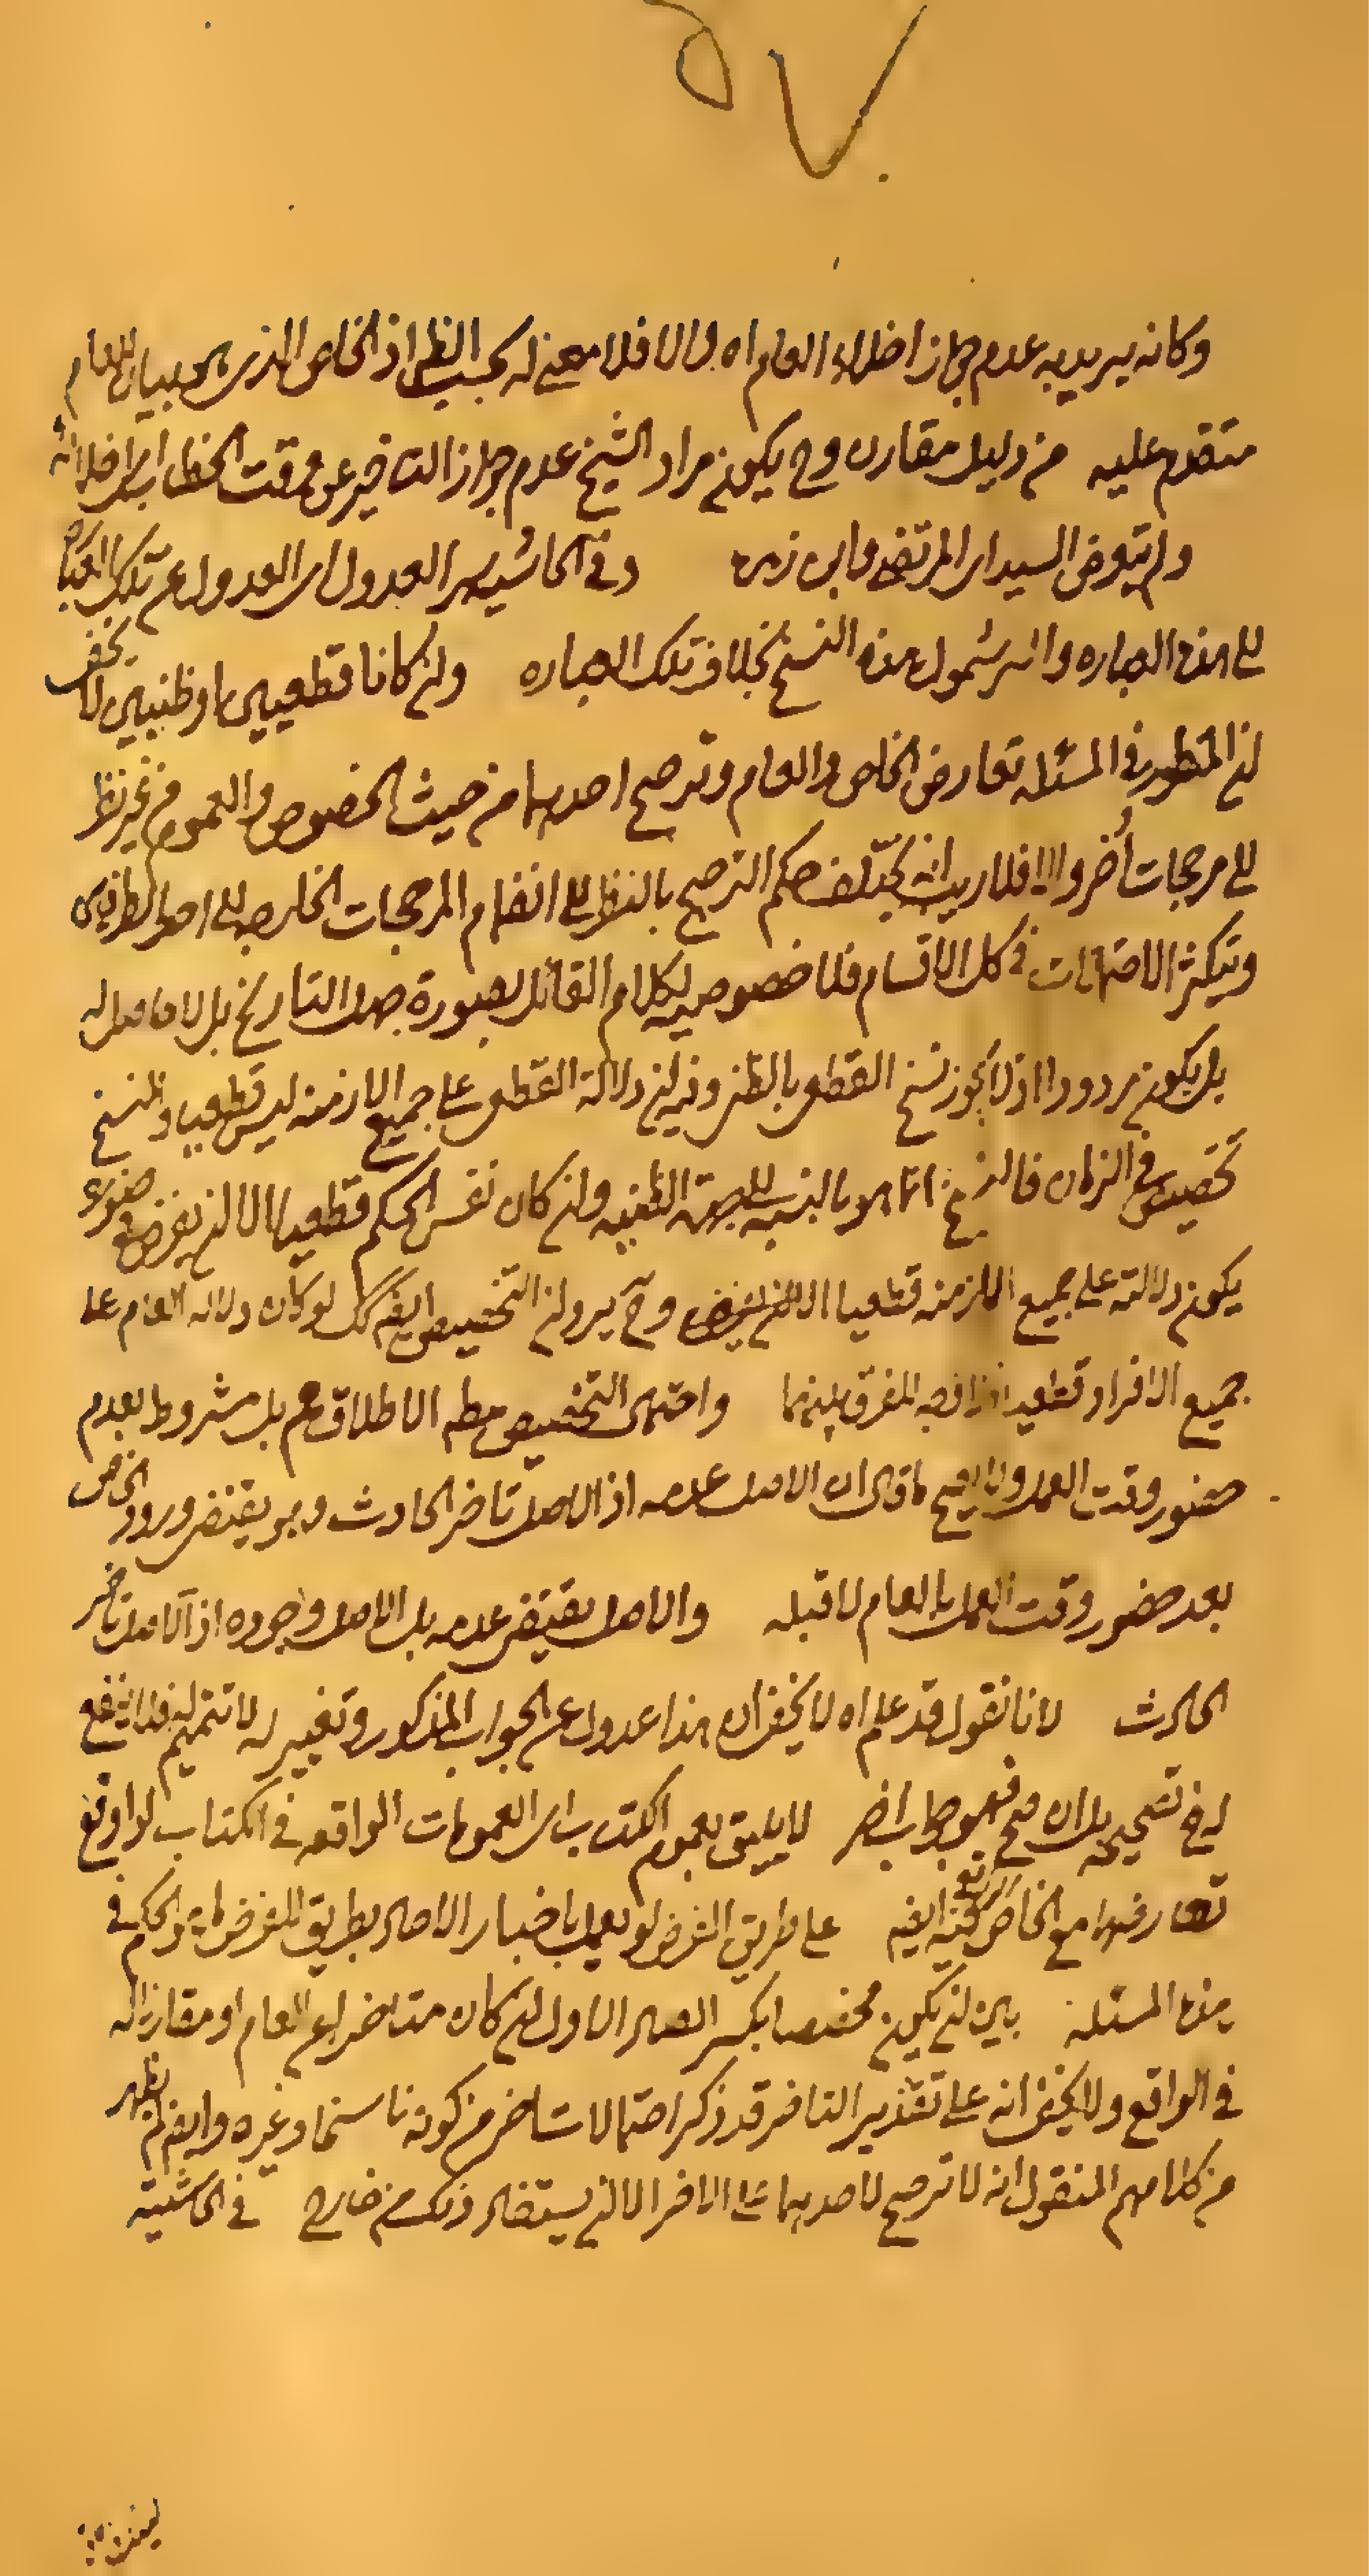 ٥٧
وكانه يريد به عدم جواز اخلاء العام اه والا فلا معنى له بحسب الظ اذ الخاص الذي هو بيان للعام
متقدم عليه من دليل مقارن وح يكون مراد الشيخ عدم جواز التاخير عن وقت الخطاب فلا
ولم يتعرض السيد اى المرتضى وابن زهره وفى الحاشيه سر العدول اى العدول عن تلك العباره
الى هذه العباره وانه شمول هذه النسخ بخلاف تلك العباره وان كانا قطعيين او ظنيين لا يخفى
ان المنظور فى المسئله تعارض الخاص والعام وترجيح احدهما من حيث الخصوص والعموم من غير نظر
الى مرجحات أخر والا فلا ريب انه يختلف حكم الترجيح بالنظر الى انضمام المرجحات الخارجه الى احد الطرفين
ويتكثر الاحتمالات فى كل الاقسام فلا خصوصيه لكلام القائل بصورة جهل التاريخ بل لا حاصل له
بل يكون مردودا اذ لا يجوز نسخ القطعى بالظنى وفيه ان دلالة القطعى على جميع الازمنه ليس قطعيا والنسخ
تخصيص فى الزمان فالنسخ انما هو بالنسبه للجهة الظنيه وان كان نفس الحكم قطعيا الا ان يفرض فى صوره
يكون دلالته على جميع الازمنه قطعيا وح يرد ان التخصيص ايضا كك لو كان دلاله العام على
جميع الافراد قطعيه فما وجه الفرق بينهما واحتمال التخصيص مطه الاطلاق مم بل مشروط بعدم
حضور وقت العمل ولا يصح ما قال ان الاصل عدمه اذ الاصل تاخر الحادث وهو يقتضى ورود الخاص
بعد حضور وقت العمل بالعام لا قبله والاصل يقتضى عدمه بل الاصل وجوده اذ الاصل تاخر
الحادث لانا نقول قد علم اه لا يخفى ان هذا عدول عن الجواب المذكور وتغيير له لا تتميم له فلا ينفع
له فى تصحيحه بل ان صح فهو جواب اخر لا يليق بعموم الكتاب اى العمومات الواقعه فى الكتاب لو وقع
تعارضها مع الخاص على طريق الفرض لو يعمل باخبار الاحاد بطريق الفرض والحكم فى
هذه المسئله بين ان يكون مخصصا بكسر الصاد الاول ان كان متاخرا عن العام او مقارنا له
فى الواقع ولا يخفى انه على تقدير التاخر قد ذكر احتمالات اخر من كونه ناسخا وغيره وايضا لم يظهر
من كلامهم المنقول انه لا ترجيح لاحدهما على الاخر الا ان يستفاد ذلك من خارج فى الحاشية